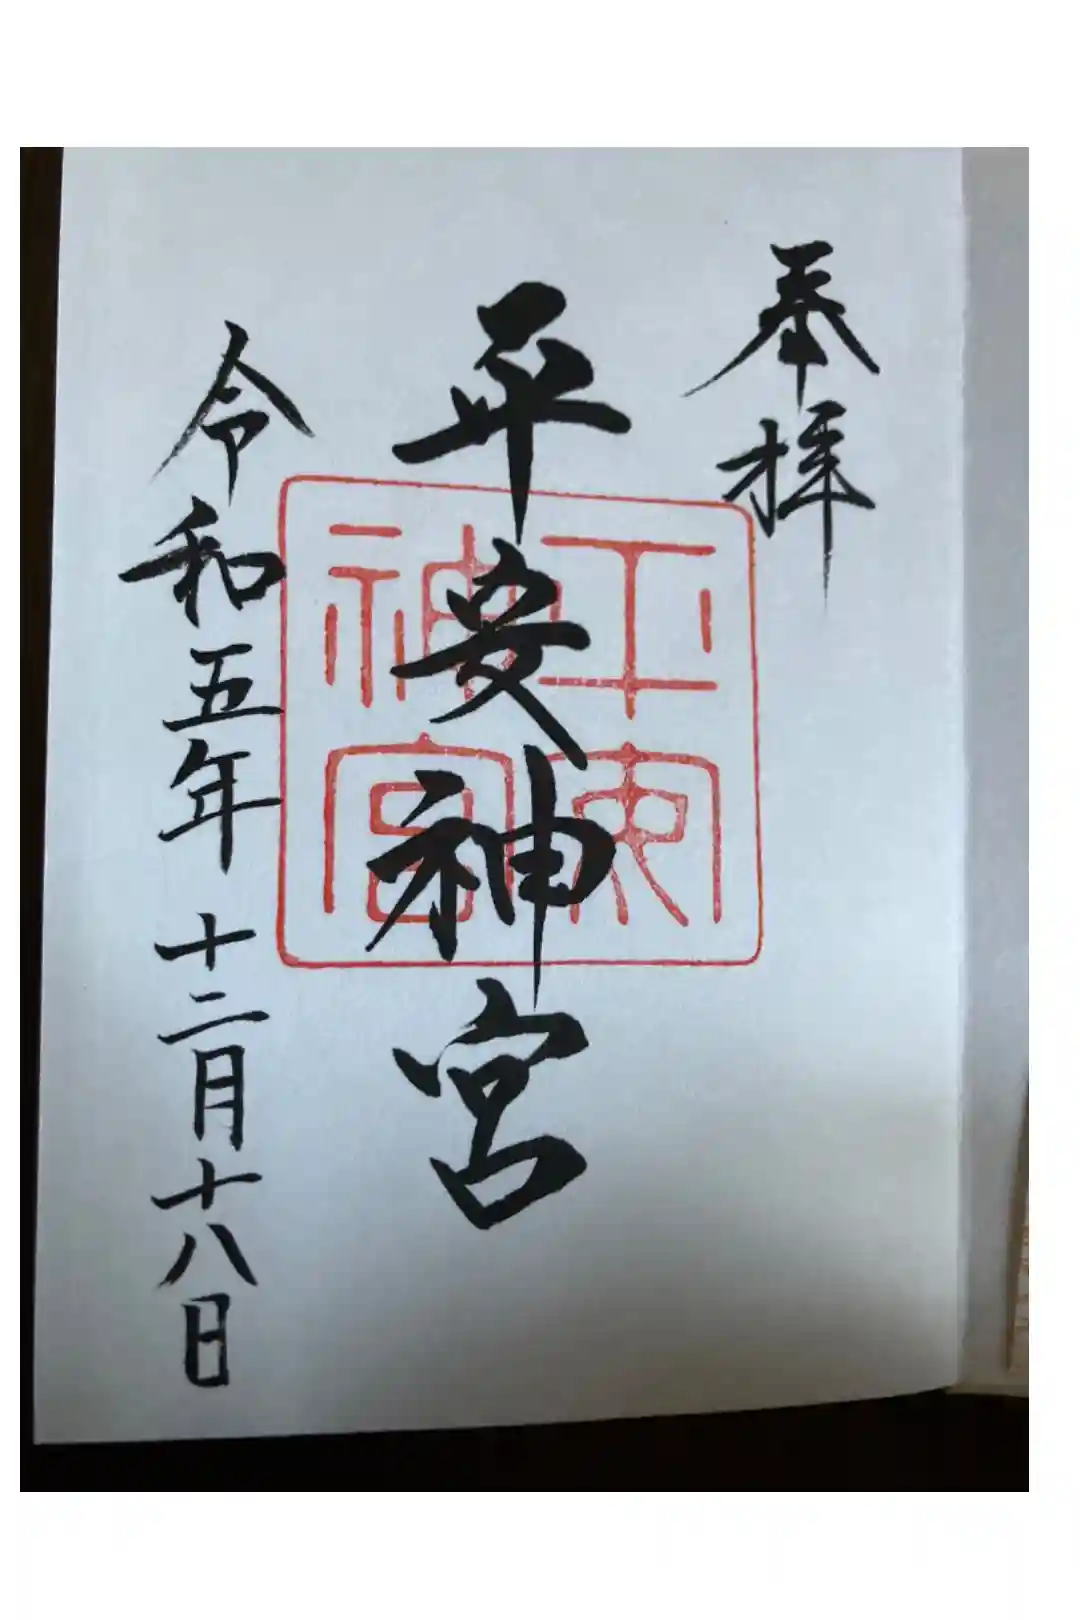 奉拝
平安神宮
令和五年十二月十八日
平安
神宮